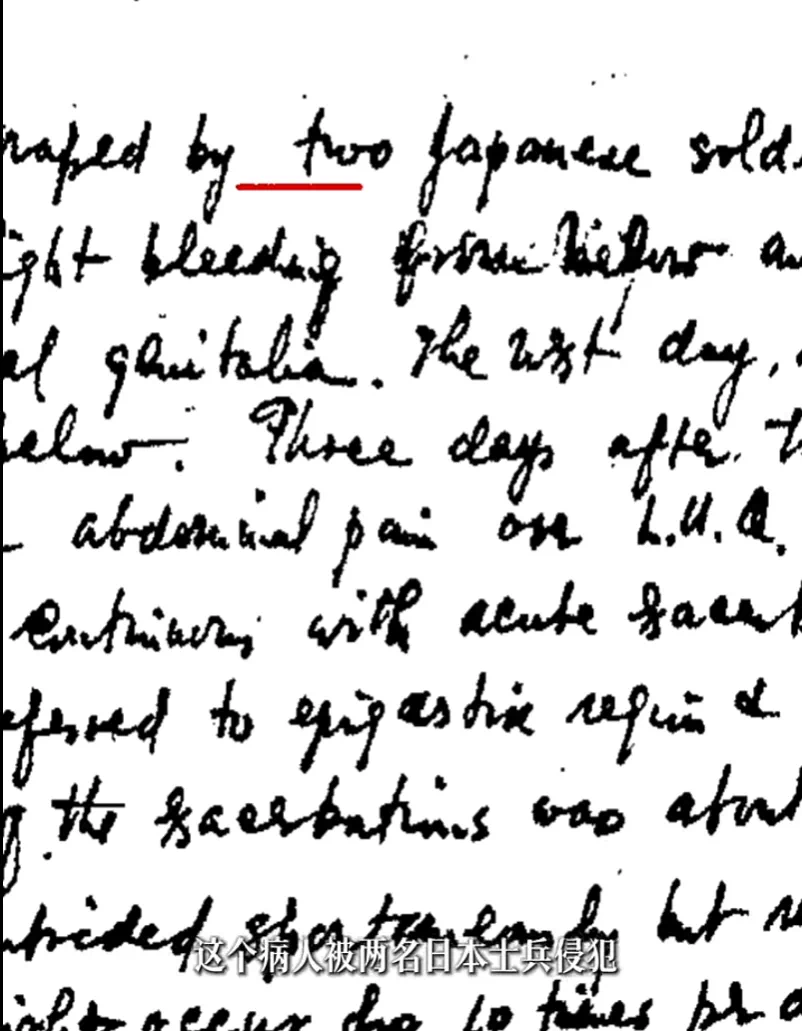 raped by two Japanese sold
ight bleeding from below a
al genitalia. The next day,
below. Three days after. t
abdominal pain on L.U.Q.
continuous with acute exacerb
eferred to epigastric region &
g the exacerbations was about
but
这个病人被两名日本士兵侵犯
occur 10 times